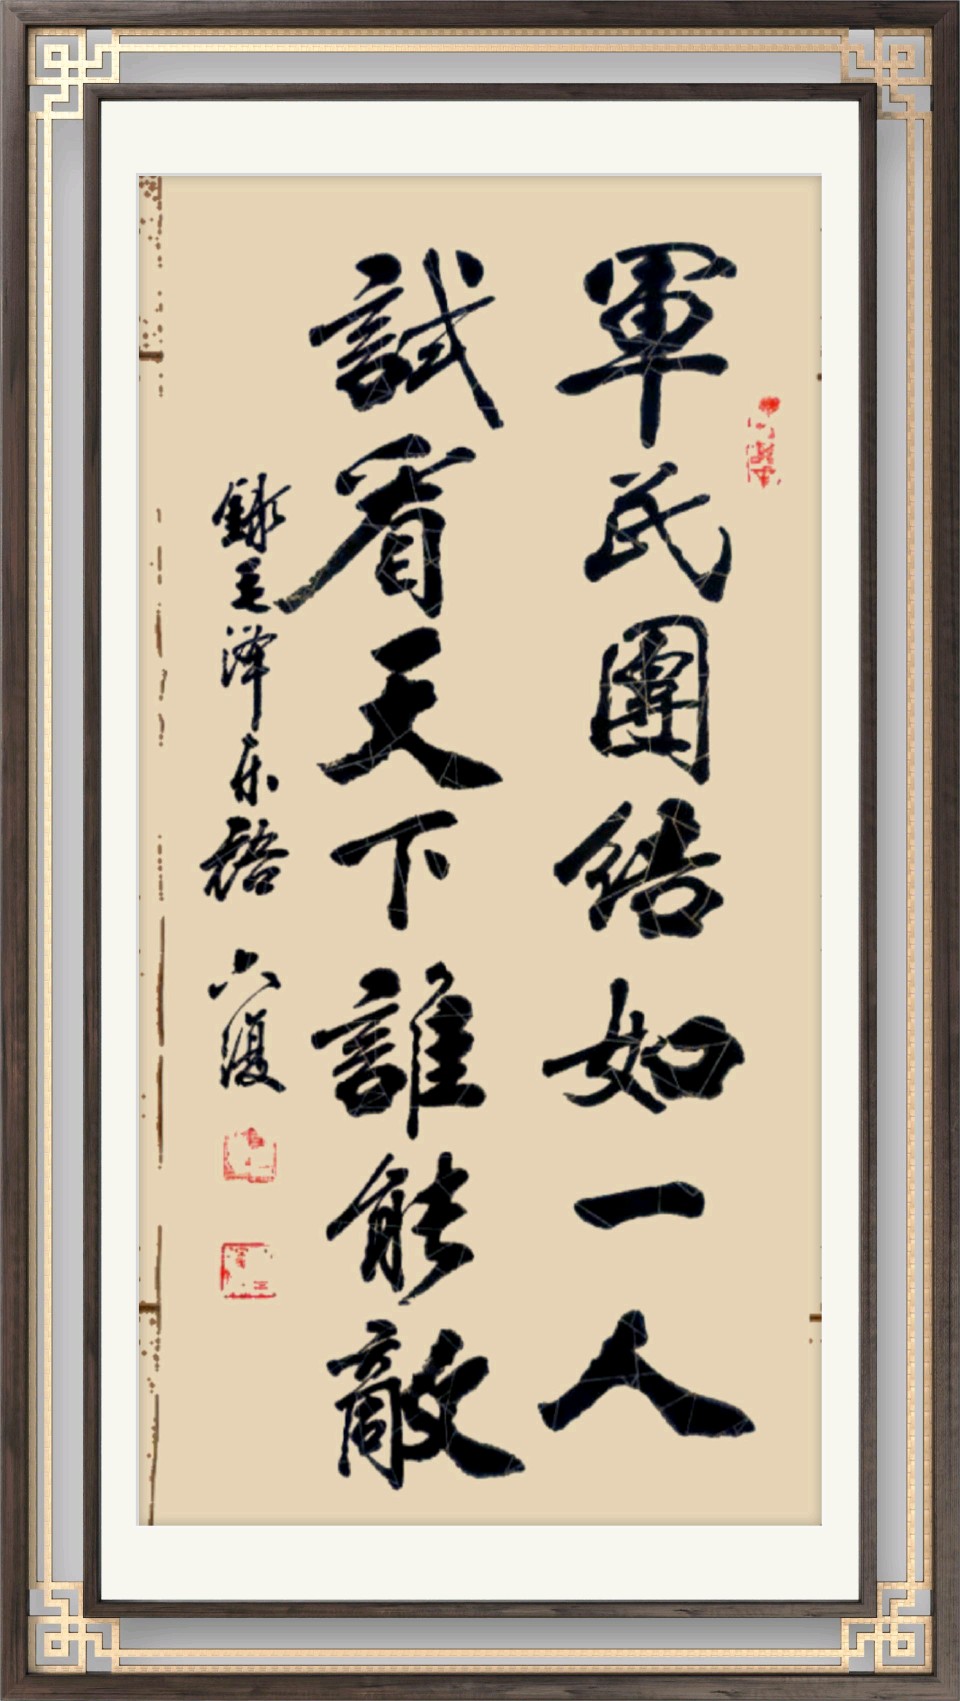 軍民團結如一人
試看天下誰能敵
錄毛澤东語 六復